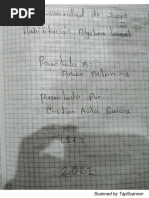 Universidad de Sucre
Habilitación Algebra lineal
Presentado A:
Amaury Palomino
Presentado Por
Cristian Avila Garcia
2021
Scanned by TapScanner